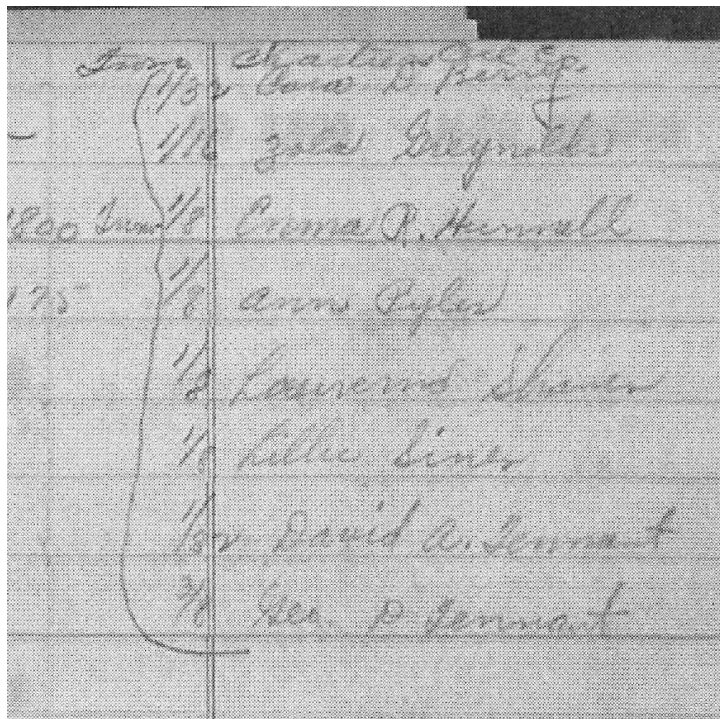 From Chartiers Oil Co.
1/32 Cora D Perry
1/16 Zola Greynolds
1800 From 1/8 Emma R. Hunnall
175 1/8 Ann Pyles
1/8 Laurena Shriver
1/8 Lillie Sines
1/32 David A. Tennant
3/8 Geo. D Tennant